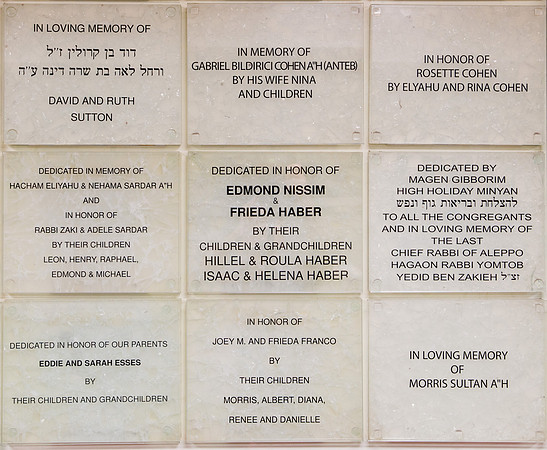 IN LOVING MEMORY OF
דוד בן קרולין ז״ל
ורחל לאה בת שרה דינה ע״ה
DAVID AND RUTH
SUTTON
IN MEMORY OF
GABRIEL BILDIRICI COHEN A"H (ANTEB)
BY HIS WIFE NINA
AND CHILDREN
IN HONOR OF
ROSETTE COHEN
BY ELYAHU AND RINA COHEN
DEDICATED IN MEMORY OF
HACHAM ELIYAHU & NEHAMA SARDAR A"H
AND
IN HONOR OF
RABBI ZAKI & ADELE SARDAR
BY THEIR CHILDREN
LEON, HENRY, RAPHAEL,
EDMOND & MICHAEL
DEDICATED IN HONOR OF
EDMOND NISSIM
&
FRIEDA HABER
BY THEIR
CHILDREN & GRANDCHILDREN
HILLEL & ROULA HABER
ISAAC & HELENA HABER
DEDICATED BY
MAGEN GIBBORIM
HIGH HOLIDAY MINYAN
להצלחת ובריאות גוף ונפש
TO ALL THE CONGREGANTS
AND IN LOVING MEMORY OF
THE LAST
CHIEF RABBI OF ALEPPO
HAGAON RABBI YOMTOB
YEDID BEN ZAKIEH זצ״ל
DEDICATED IN HONOR OF OUR PARENTS
EDDIE AND SARAH ESSES
BY
THEIR CHILDREN AND GRANDCHILDREN
IN HONOR OF
JOEY M. AND FRIEDA FRANCO
BY
THEIR CHILDREN
MORRIS, ALBERT, DIANA,
RENEE AND DANIELLE
IN LOVING MEMORY
OF
MORRIS SULTAN A"H